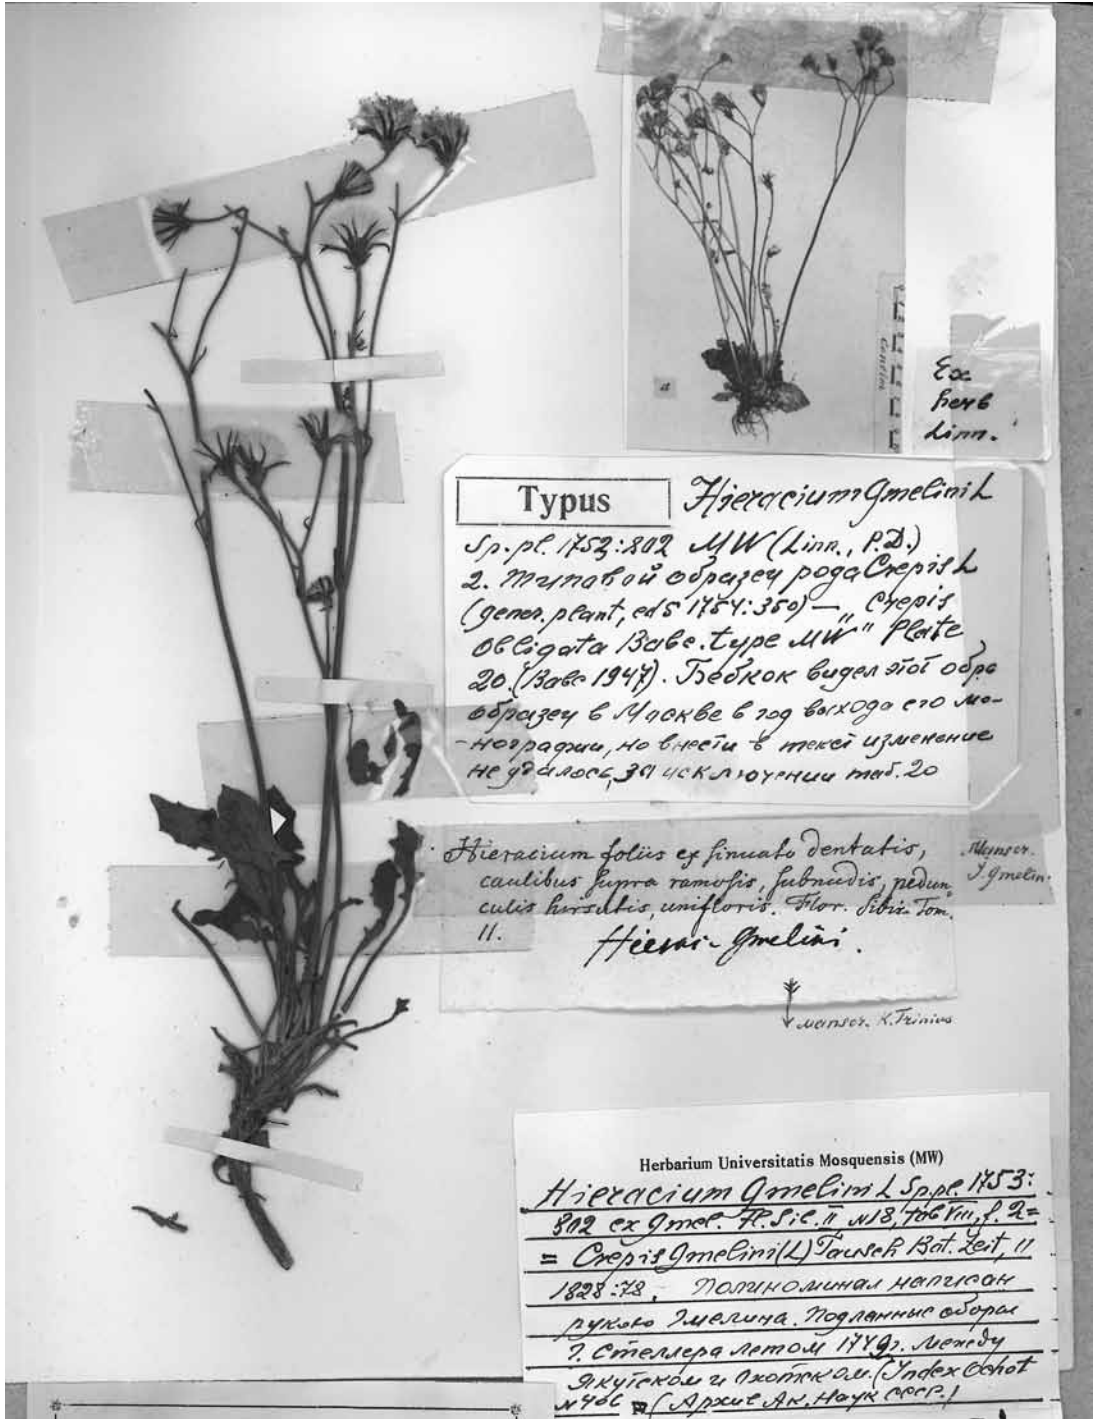 Ex
herb
Linn.
Typus
Hieracium Gmelini L
Sp. pl. 1753:802 MW (Linn., P.D.)
2. Типовой образец рода Crepis L
(gener. plant, ed 5 1754:350) — "Crepis
obligata Babc. type MW" Plate
20. (Babc 1947). Бебкок видел этот обра
образец в Москве в год выхода его мо-
-нографии, но внести в текст изменение
не удалось, за исключении таб. 20
Hieracium foliis ex sinuato dentatis,
caulibus supra ramosis, subnudis, pedun-
culis hirsutis, unifloris. Flor. Sibir. Tom.
II.
Hierac. Gmelini.
Manscr.
J. Gmelin.
manscr. K. Trinius
Herbarium Universitatis Mosquensis (MW)
Hieracium Gmelini L Sp. pl. 1753:
802 ex Gmel. Fl. Sib. II N18, tab VIII, f. 2=
= Crepis Gmelini (L) Tausch Bot. Zeit, 11
1828:78. Полиноминал написан
рукою Гмелина. Подлинные сборы
Г. Стеллера летом 1749г. между
Якутском и Охотском. (Index Ochot
N406 (Архив Ак. Наук СССР.)